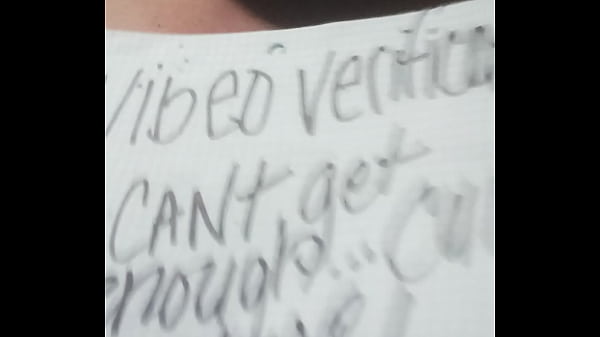 Video verifica
CANt get
enough... Cu